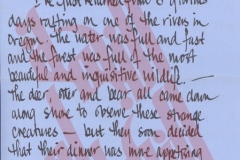 just returned from 8 glorious
days rafting on one of the rivers in
oregon. The water was full and fast
and the forest was full of the most
beautiful and inquisitive wildlife. —
The deer, otter and bear all came down
along shore to observe these strange
creatures — but they soon decided
that their dinner was more appetizing